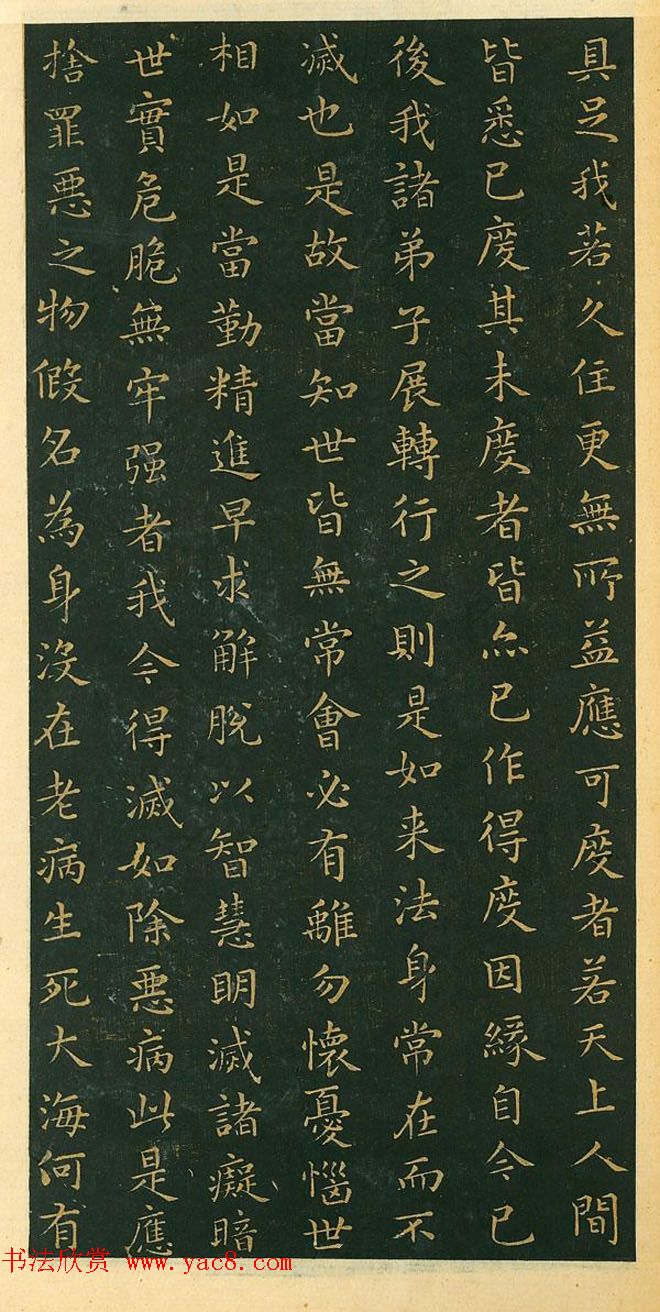 具足我若久住更無所益應可度者若天上人間
皆悉已度其未度者皆亦已作得度因緣自今已
後我諸弟子展轉行之則是如来法身常在而不
滅也是故當知世皆無常會必有離勿懷憂惱世
相如是當勤精進早求解脫以智慧明滅諸癡暗
世實危脆無牢强者我今得滅如除惡病此是應
捨罪惡之物假名為身没在老病生死大海何有
书法欣赏 www.yac8.com